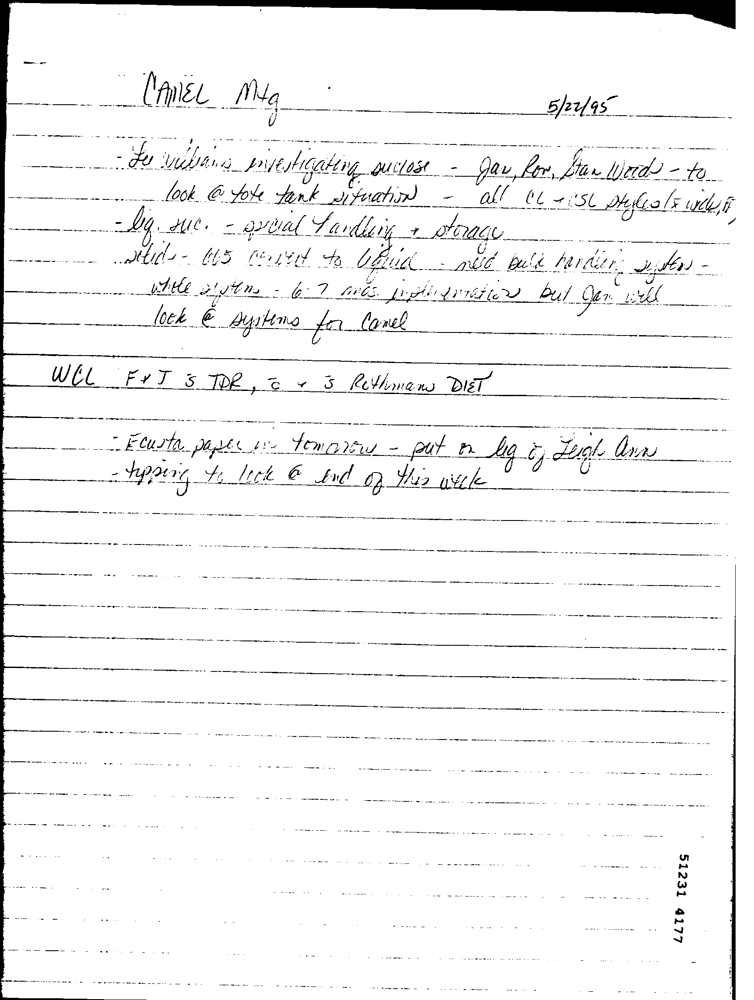 CAMEL Mtg
5/22/95
- investigating sucrose - Jan, Ron, Stan Woods - to
look @ tote tank situation - all styles
- liq. suc. - special handling + storage
convert to liquid - need bulk handling system -
whole system - 6-7 mos implementation but Jan will
look @ systems for Camel
WCL F+J TDR, Rothmans DIET
- Ecusta paper in tomorrow - put on leg of Leigh Ann
- tipping to look @ end of this week
51231 4177